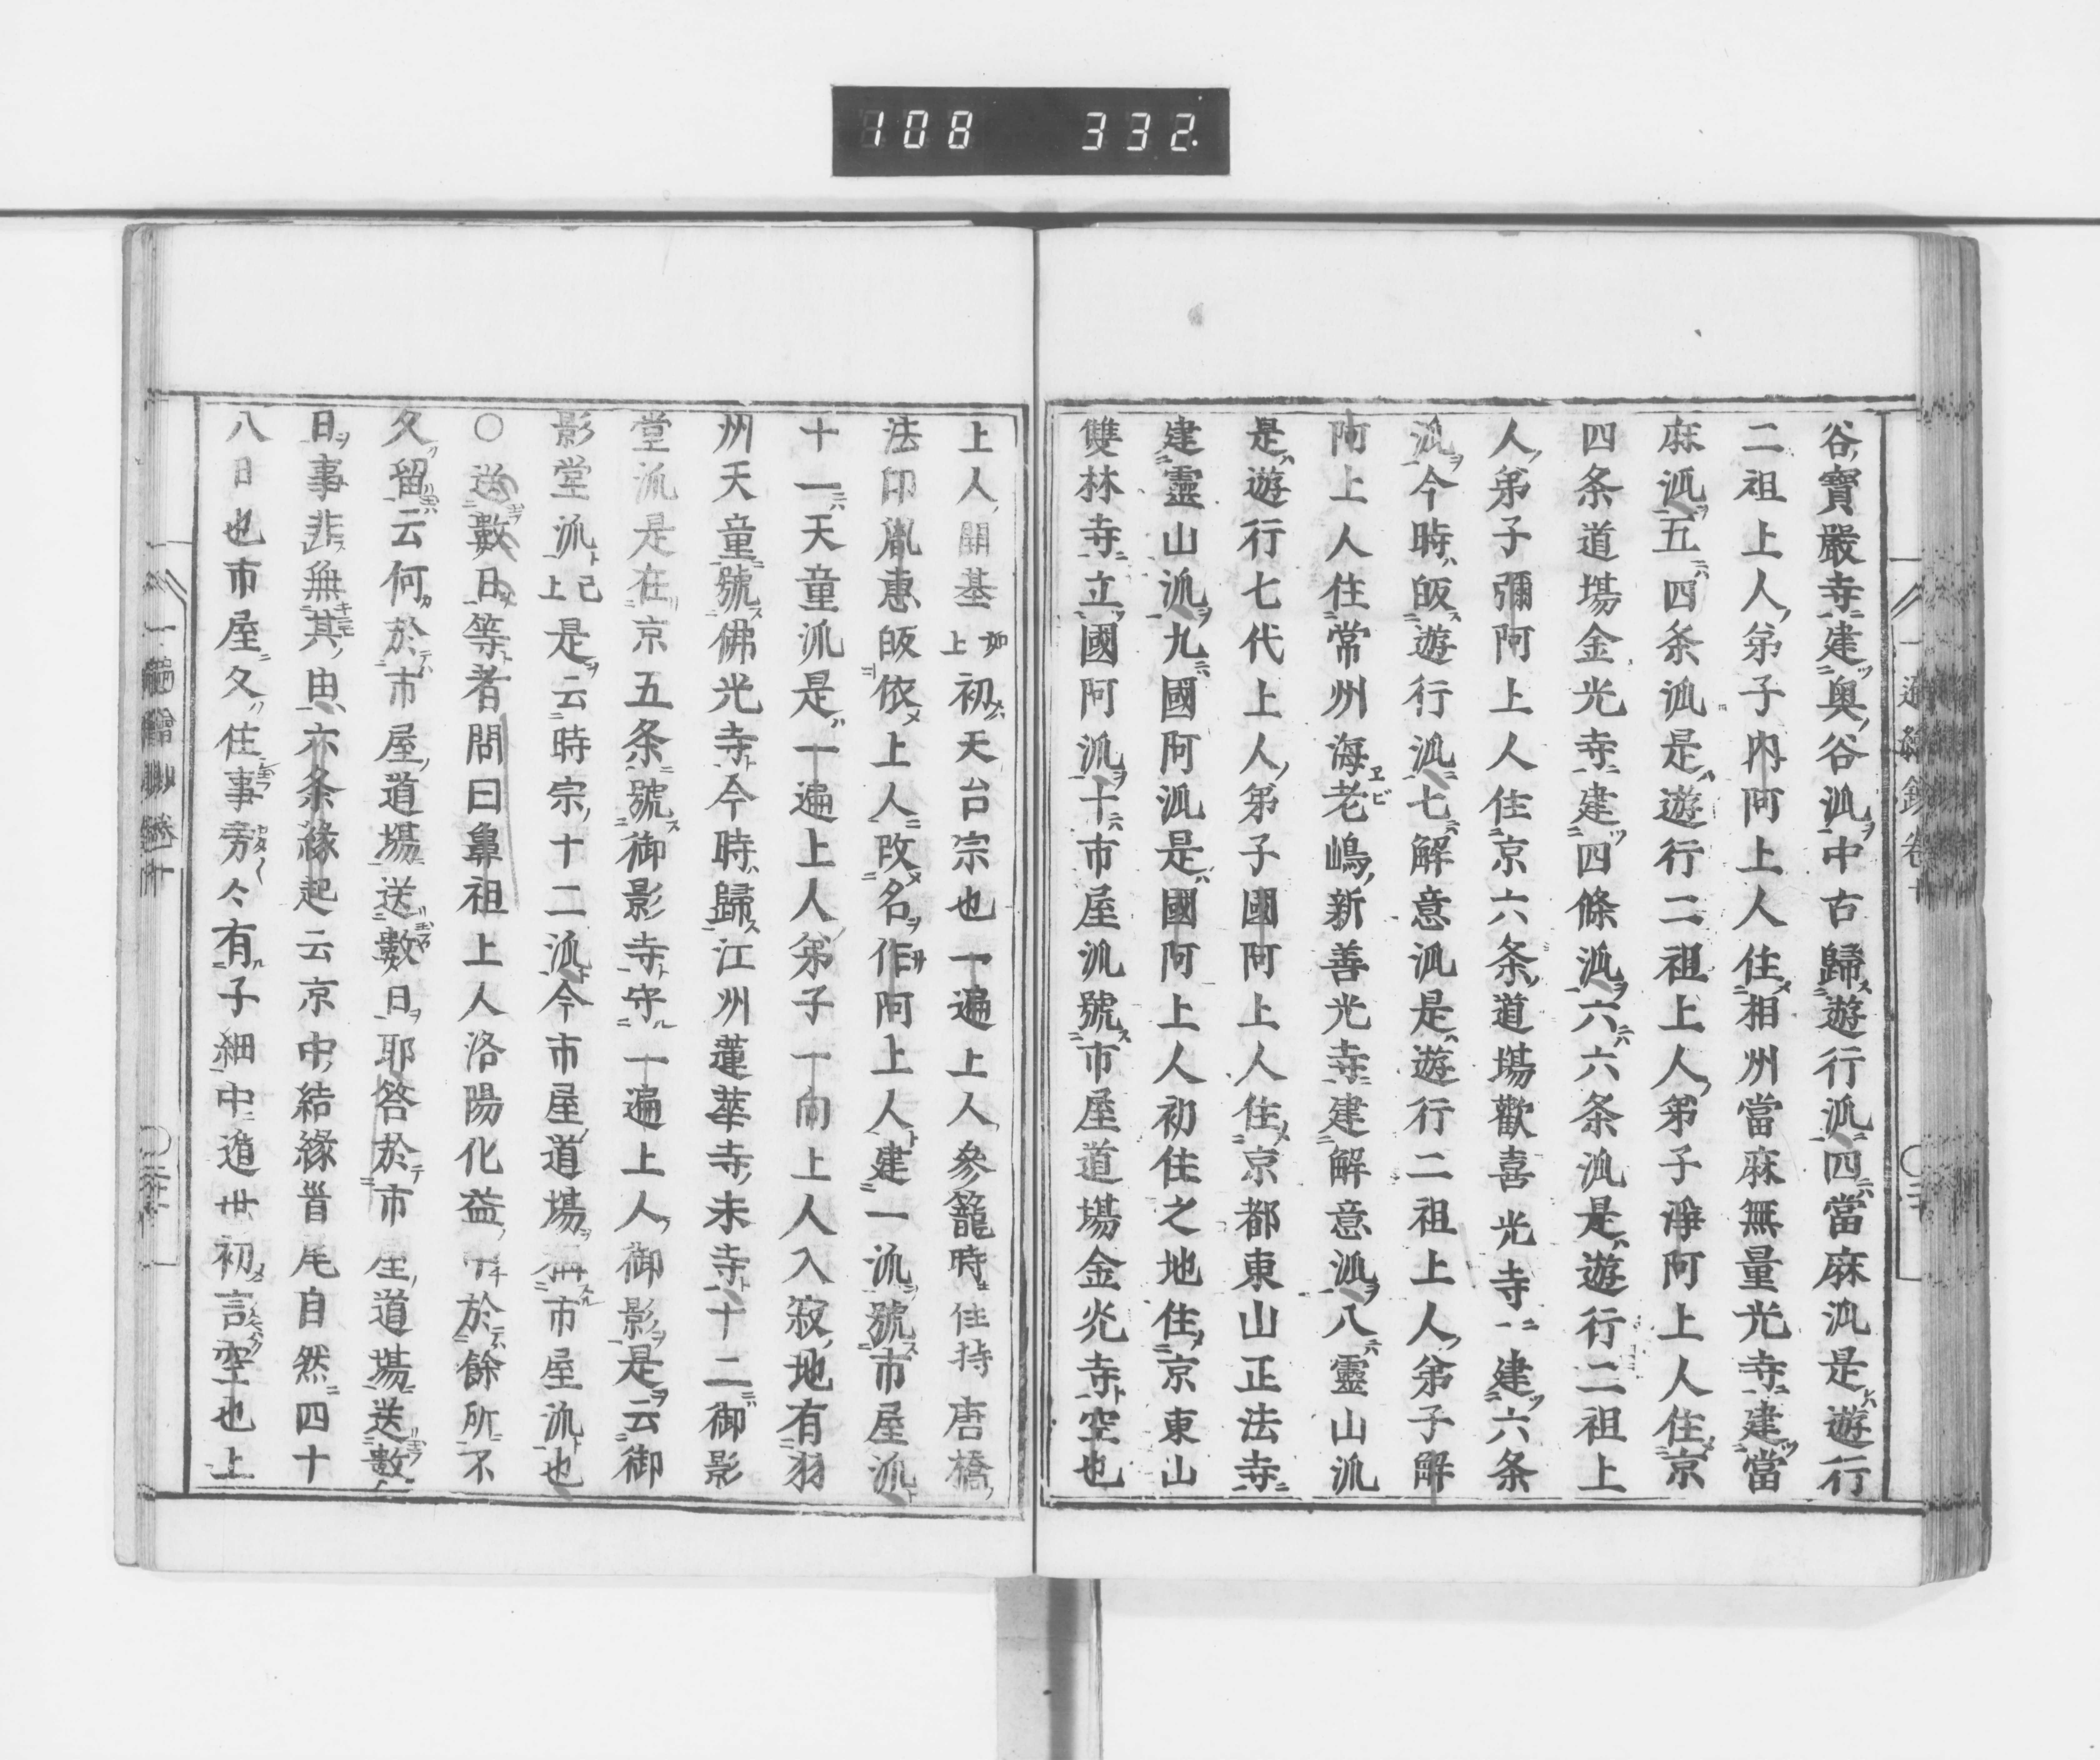 108 332.
谷寶嚴寺建奥谷派中古歸遊行派四當麻派是遊行
二祖上人弟子内阿上人住相州當麻無量光寺建當
麻派五四条派是遊行二祖上人弟子淨阿上人住京
四条道場金光寺建四條派六六条派是遊行二祖上
人弟子彌阿上人住京六条道場歡喜光寺建六条
派今時皈遊行派七解意派是遊行二祖上人弟子解
阿上人住常州海老嶋新善光寺建解意派八靈山派
是遊行七代上人弟子國阿上人住京都東山正法寺
建靈山派九國阿派是國阿上人初住之地住京東山
雙林寺立國阿派十市屋派號市屋道場金光寺空也
上人開基如上初天台宗也一遍上人參籠時住持唐橋
法印胤惠皈依上人改名作阿上人建一派號市屋派
十一天童派是一遍上人弟子一向上人入寂地有羽
州天童號佛光寺今時歸江州蓮華寺末寺十二御影
堂派是在京五条號御影寺守一遍上人御影是云御
影堂派已上是云時宗十二派今市屋道場市屋派也
○送數日等者問曰鼻祖上人洛陽化益於餘所不
久留云何於市屋道場送數日耶答於市屋道場送數
日事非無其由六条緣起云京中結緣首尾自然四十
八日也市屋久住事旁々有子細中遁世初言空也上
一遍繪鈔卷十